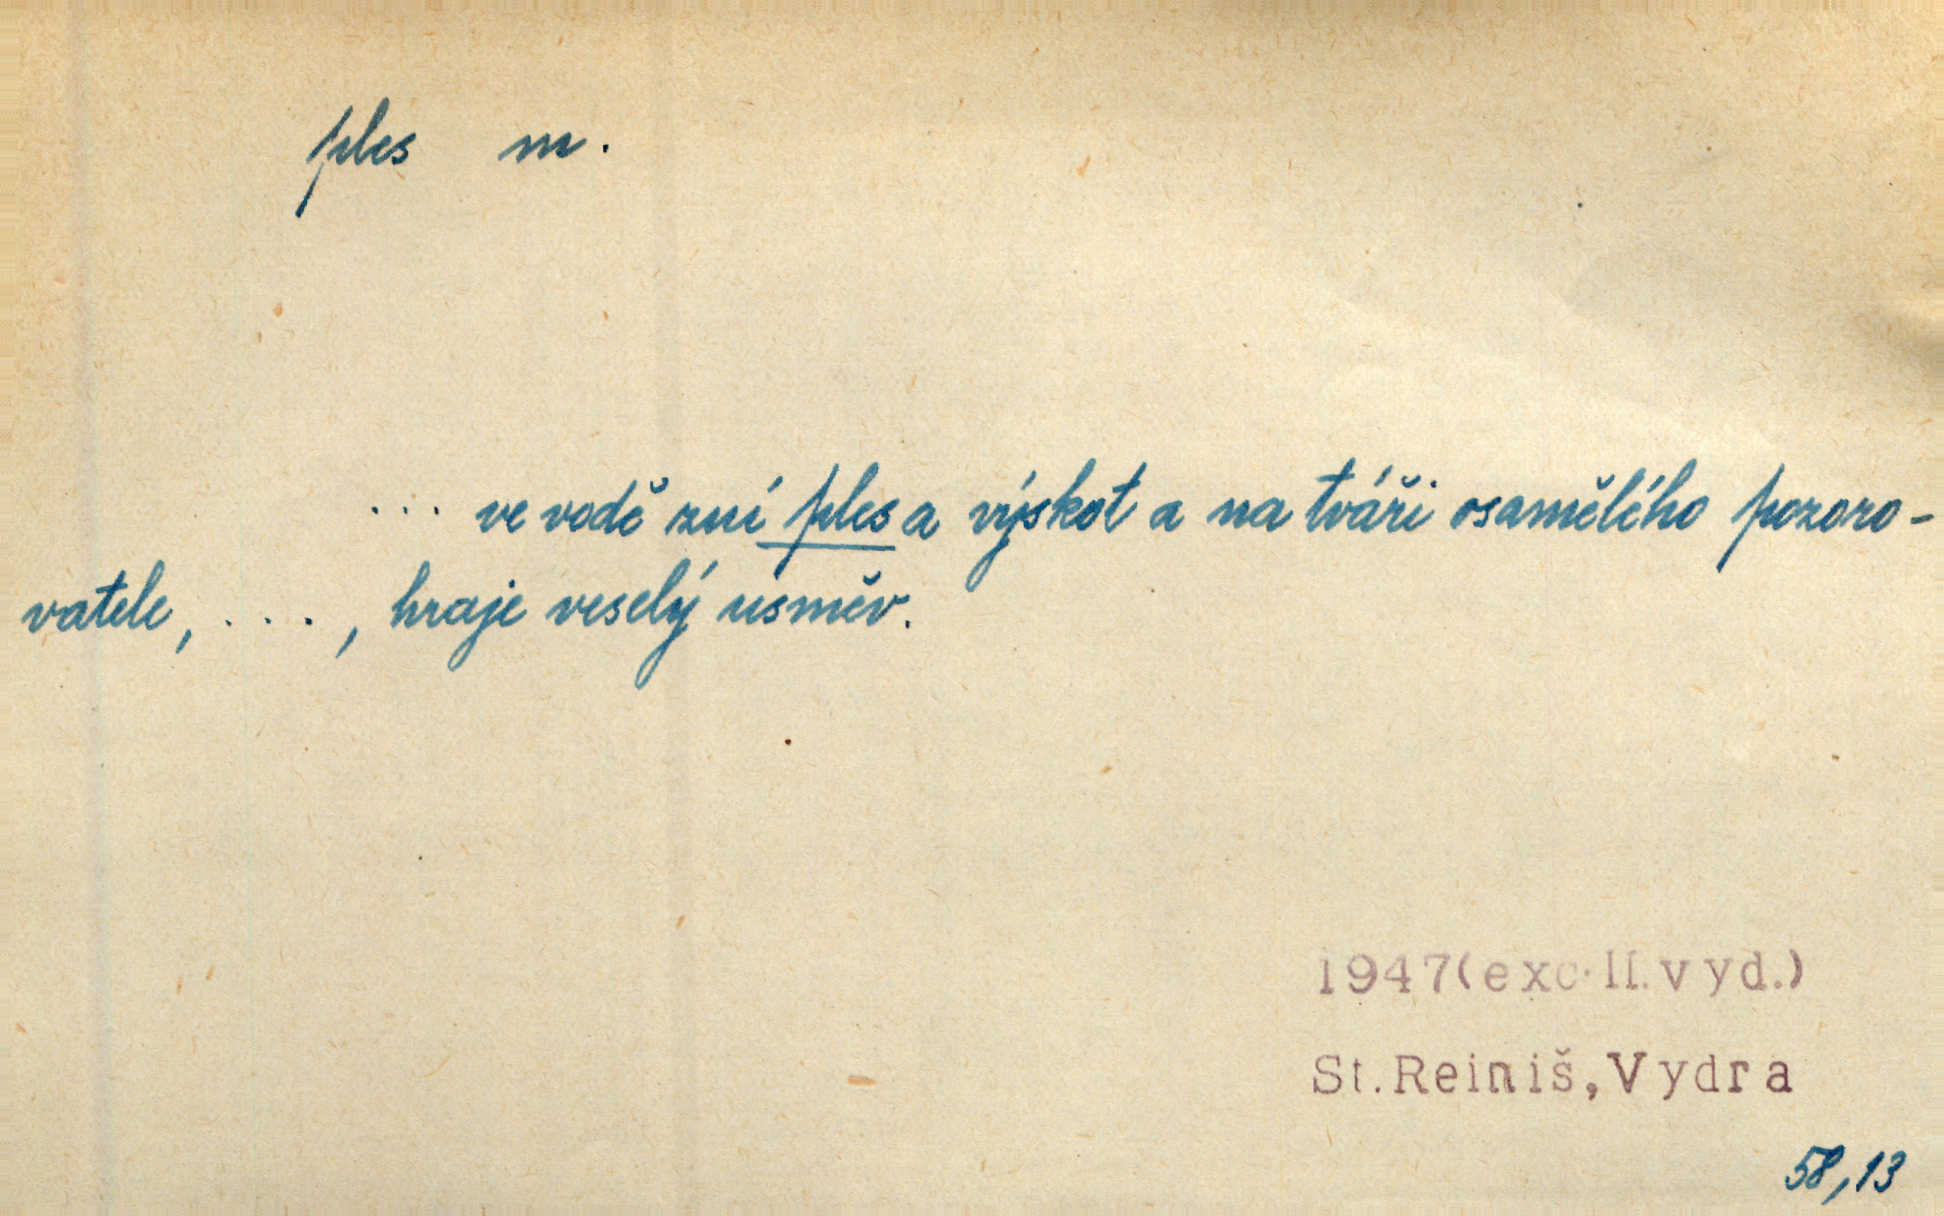 ples m.
... ve vodě zní ples a výskot a na tváři osamělého pozoro-
vatele, ..., hraje veselý usměv.
1947(exc.II.vyd.)
St.Reiniš,Vydra
58,13